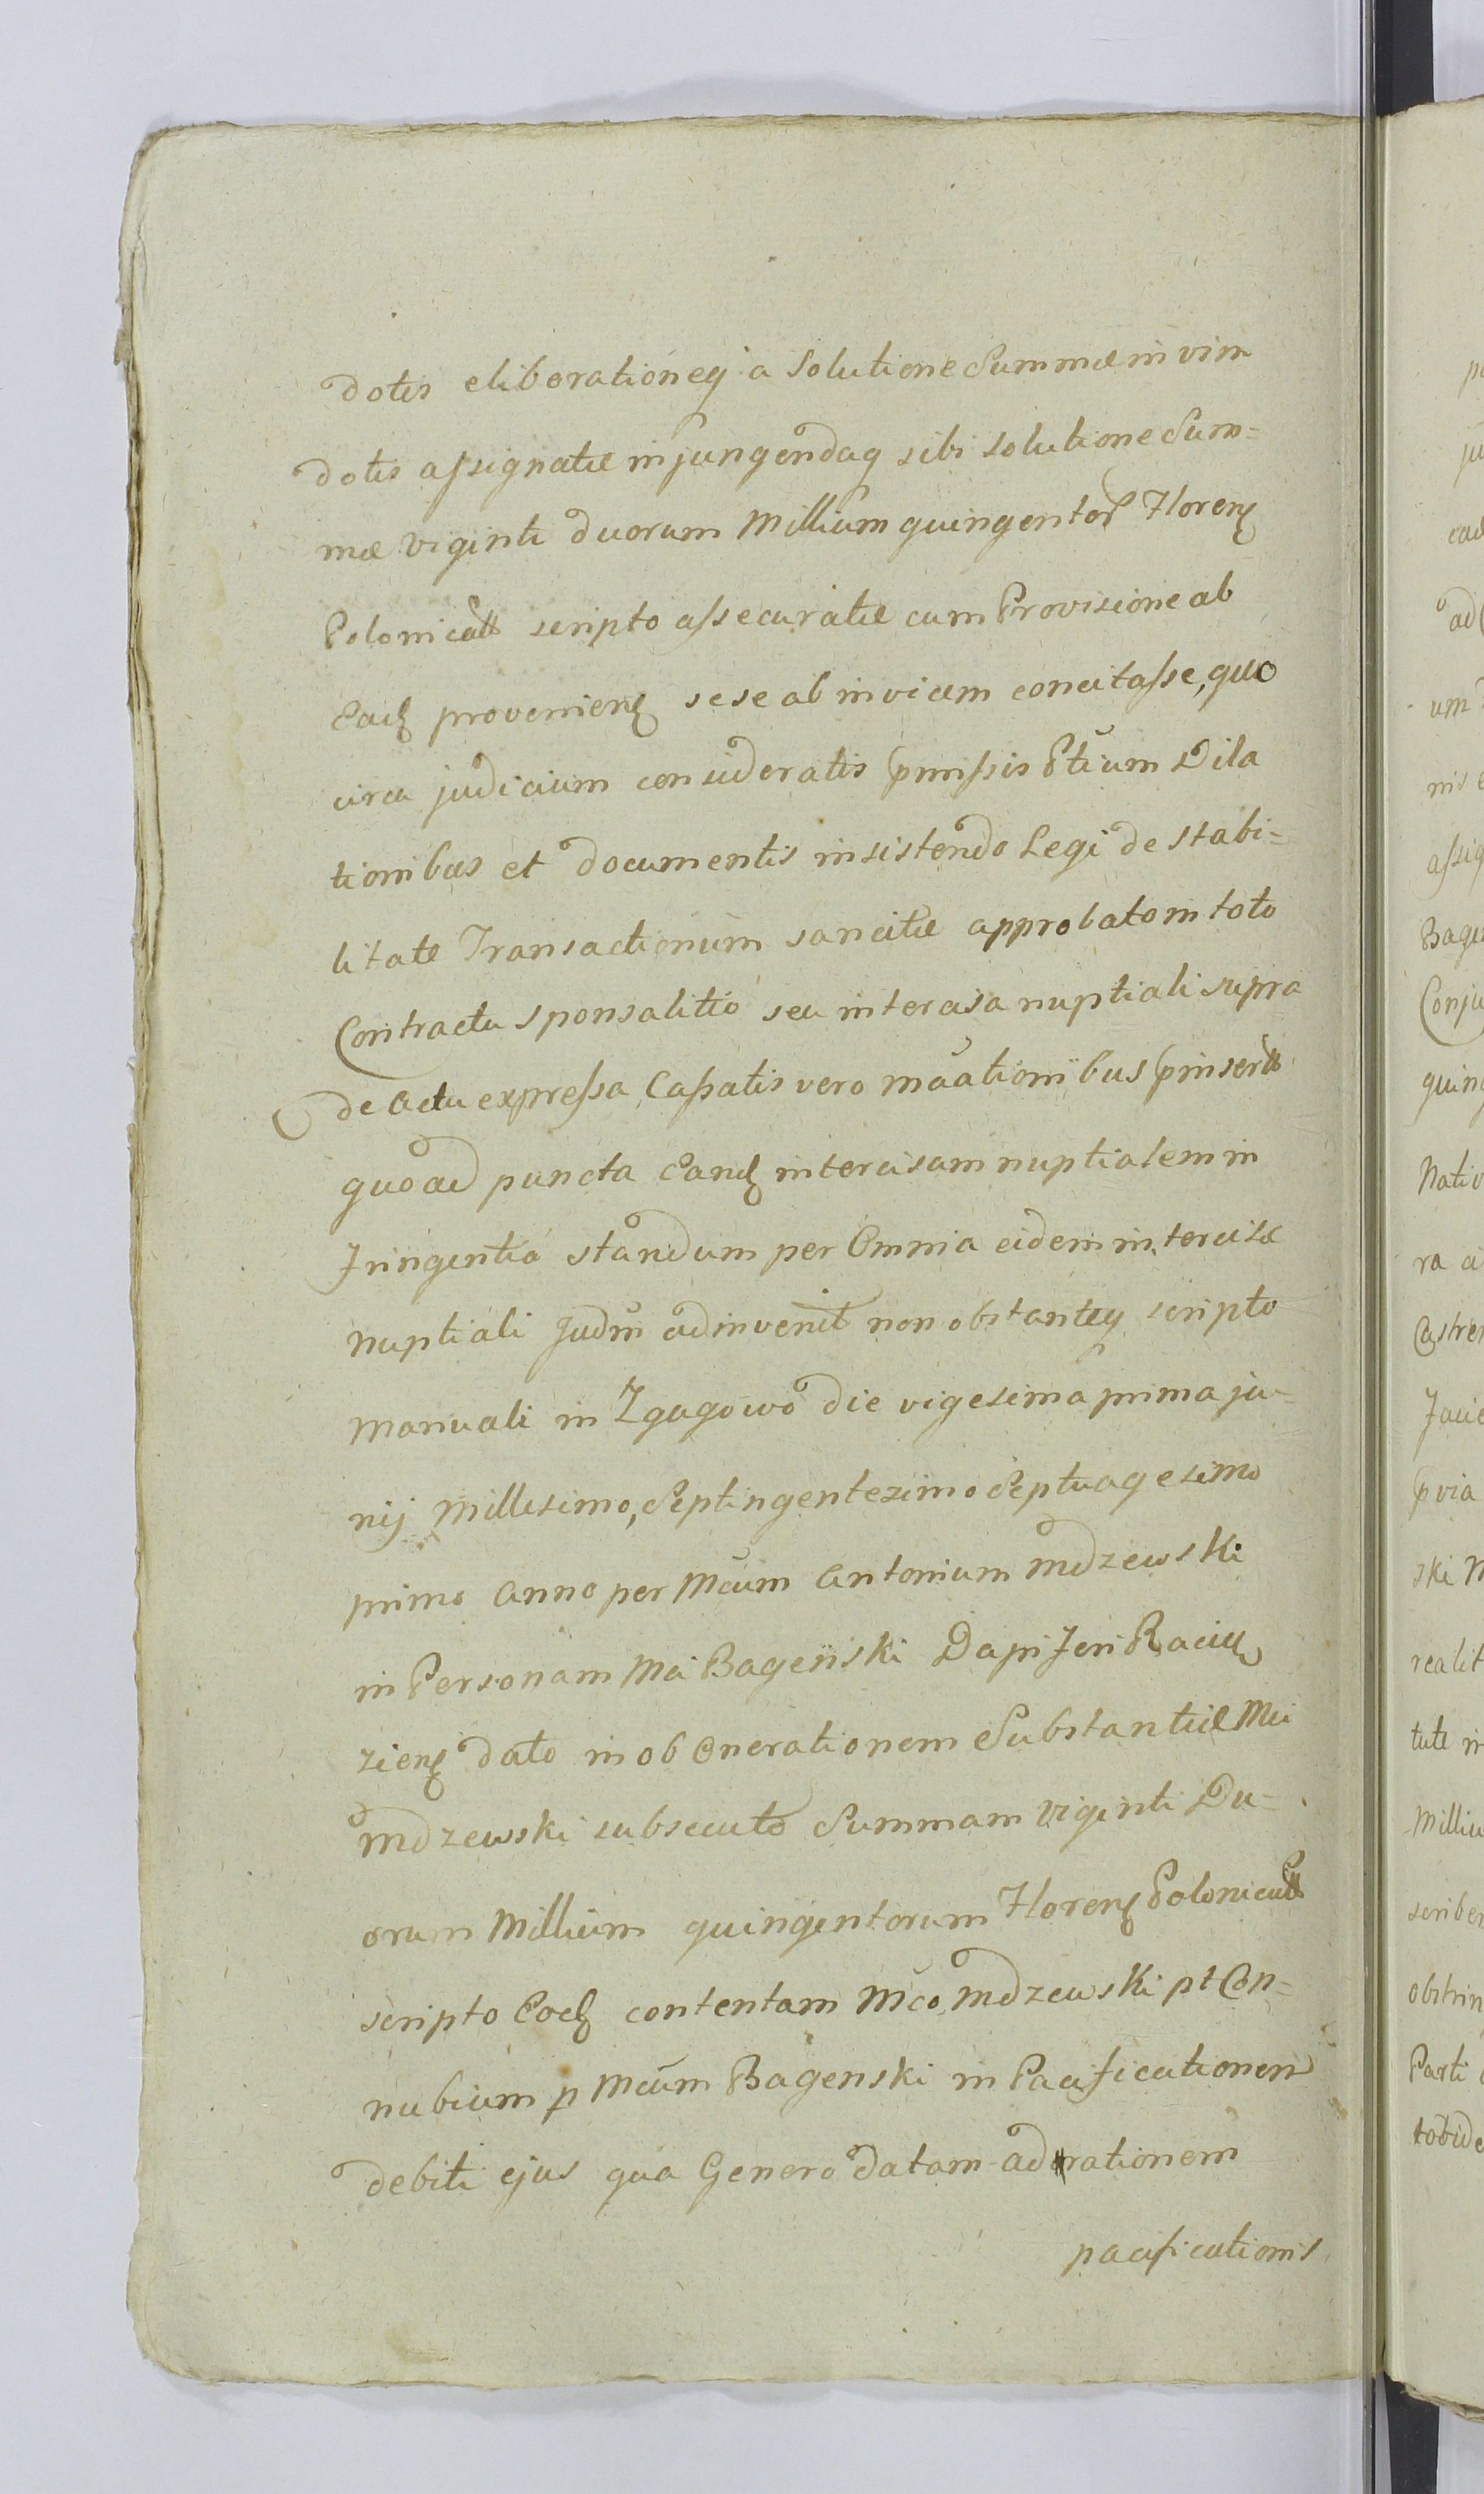 dotis eliberationeq a Solutione Summæ in vim
dotis assignatæ injungendaq sibi solutione Sum=
mæ viginti duorum Millium quingentor Floren
Polonicall scripto assecuratæ cum Provisione ab
Ead provenien sese ab invicem concitasse, quo
circa judicium consideratis pmissis Ptium Dila
tionibus et documentis insistendo Legi de stabi=
litate Transactionum sancitæ approbato in toto
Contractu sponsalitio seu intercisa nuptiali supra
de actu expressa, Cassatis vero mãationibus pinsert
quoad puncta Eand intercisam nuptialem in
fringentia standum per Omnia eidem intercisæ
nuptiali Judm adinvenit non obstanteq scripto
manuali in Zgagowo die vigesima prima ju=
nij Millesimo, Septingentesimo Septuagesimo
primo Anno per Mcum Antonium Mdzewski
in Personam Mci Bagenski Dapiferi Raciąz
zien dato in ob Onerationem Substantiæ Mci
Mdzewski subsecuto Summam viginti Du=
orum Millium quingentorum Floren Polonicall
scripto Eod contentam Mco Mdzewski pt Con=
nubium p Mcum Bagenski in Pacificationem
debiti ejus qua Genero datam ad rationem
pacificationis
ad
um
assig
Conju
quing
Nativ
ra a
Jacie
pvia
ski M
realit
Milliu
obstrin
Parti